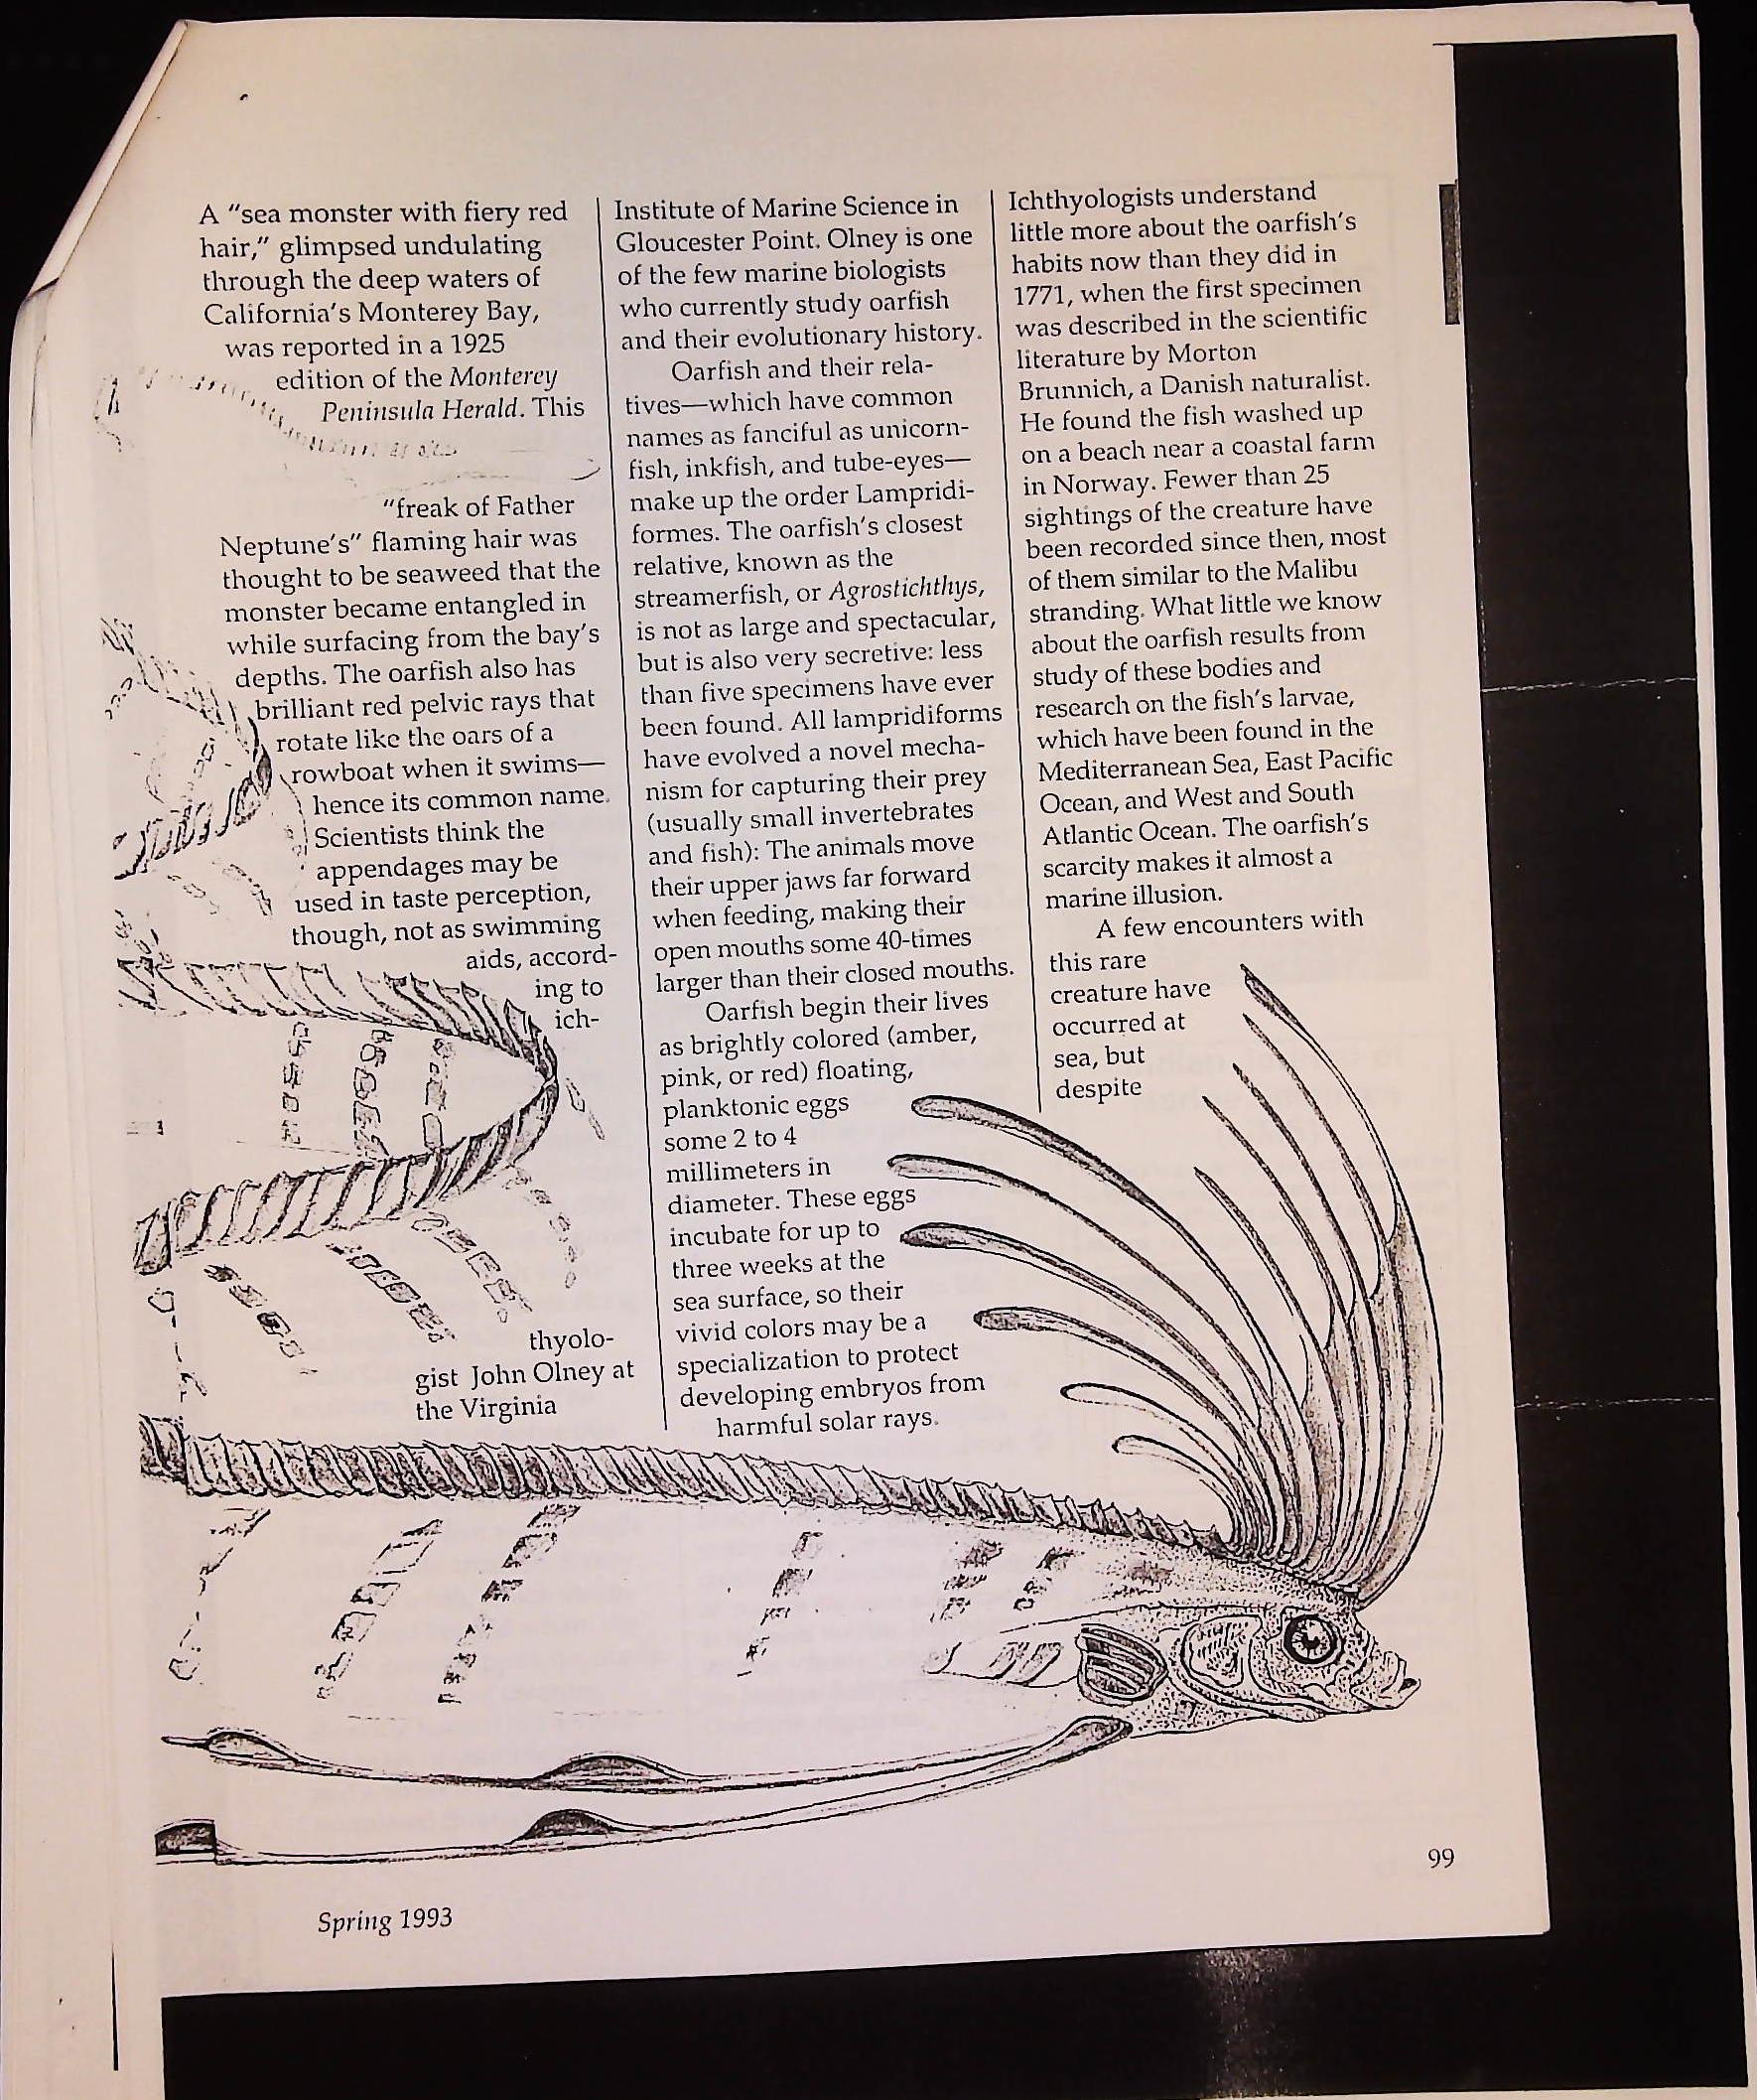 A "sea monster with fiery red
hair," glimpsed undulating
through the deep waters of
California's Monterey Bay,
was reported in a 1925
edition of the Monterey
Peninsula Herald. This
"freak of Father
Neptune's" flaming hair was
thought to be seaweed that the
monster became entangled in
while surfacing from the bay's
depths. The oarfish also has
brilliant red pelvic rays that
rotate like the oars of a
rowboat when it swims—
hence its common name.
Scientists think the
appendages may be
used in taste perception,
though, not as swimming
aids, accord-
ing to
ich-
thyolo-
gist John Olney at
the Virginia
Institute of Marine Science in
Gloucester Point. Olney is one
of the few marine biologists
who currently study oarfish
and their evolutionary history.
Oarfish and their rela-
tives—which have common
names as fanciful as unicorn-
fish, inkfish, and tube-eyes—
make up the order Lampridi-
formes. The oarfish's closest
relative, known as the
streamerfish, or Agrostichthys,
is not as large and spectacular,
but is also very secretive: less
than five specimens have ever
been found. All lampridiforms
have evolved a novel mecha-
nism for capturing their prey
(usually small invertebrates
and fish): The animals move
their upper jaws far forward
when feeding, making their
open mouths some 40-times
larger than their closed mouths.
Oarfish begin their lives
as brightly colored (amber,
pink, or red) floating,
planktonic eggs
some 2 to 4
millimeters in
diameter. These eggs
incubate for up to
three weeks at the
sea surface, so their
vivid colors may be a
specialization to protect
developing embryos from
harmful solar rays.
Ichthyologists understand
little more about the oarfish's
habits now than they did in
1771, when the first specimen
was described in the scientific
literature by Morton
Brunnich, a Danish naturalist.
He found the fish washed up
on a beach near a coastal farm
in Norway. Fewer than 25
sightings of the creature have
been recorded since then, most
of them similar to the Malibu
stranding. What little we know
about the oarfish results from
study of these bodies and
research on the fish's larvae,
which have been found in the
Mediterranean Sea, East Pacific
Ocean, and West and South
Atlantic Ocean. The oarfish's
scarcity makes it almost a
marine illusion.
A few encounters with
this rare
creature have
occurred at
sea, but
despite
99
Spring 1993